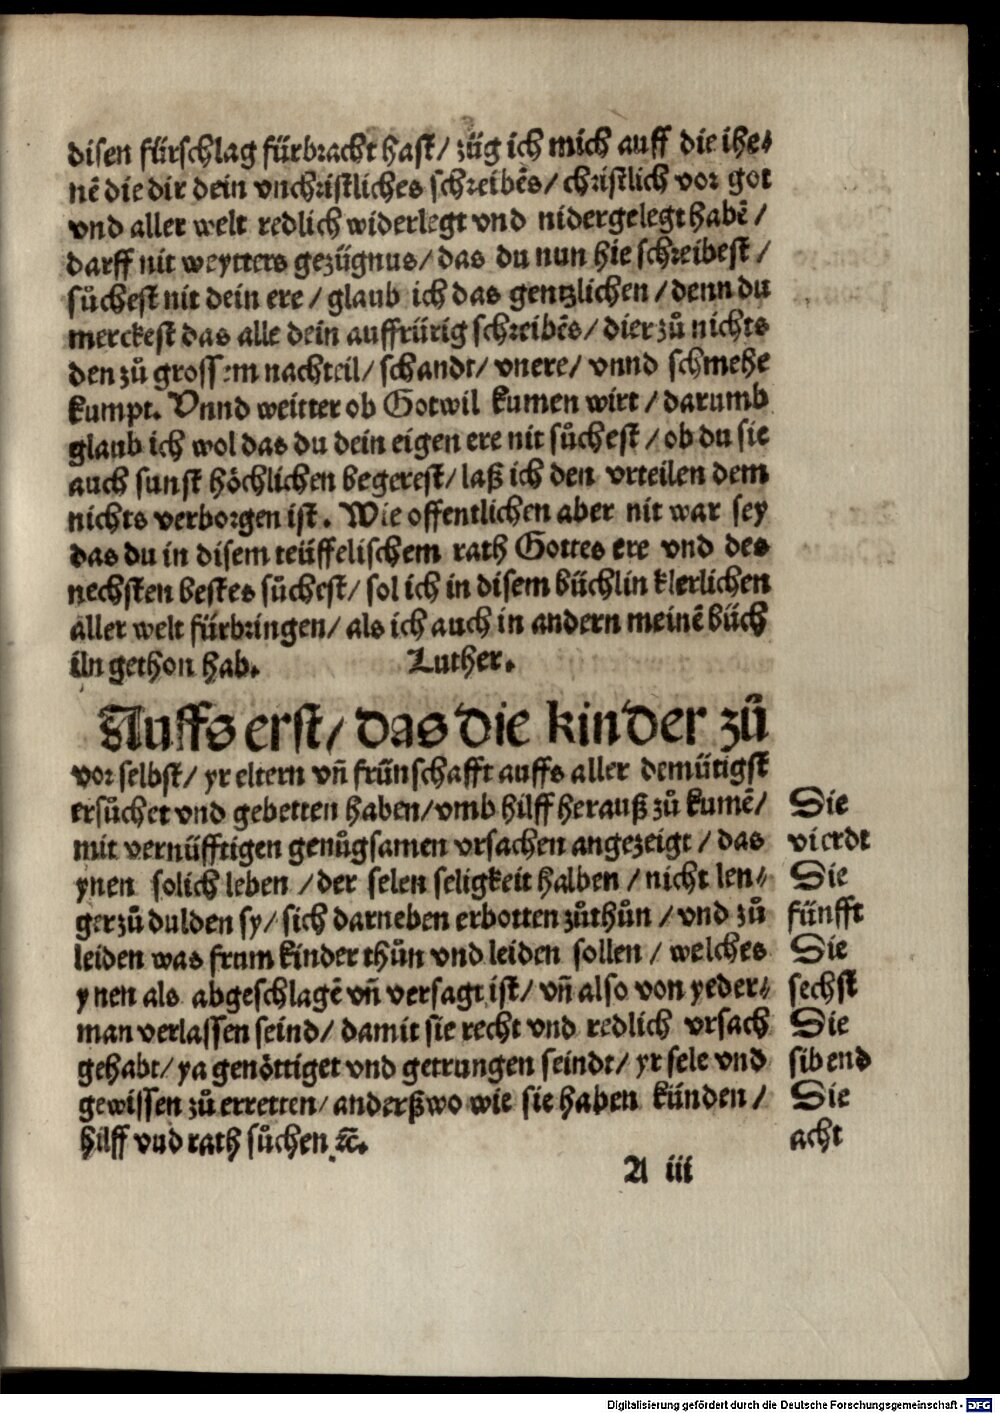 disen fürschlag fürbracht hast/ züg ich mich auff die ihe⸗
nē die dir dein vnchristliches schreibēs/ christlich vor got
vnd aller welt redlich widerlegt vnd nidergelegt habē/
darff nit weytters gezügnus/ das du nun hie schreibest/
sůchest nit dein ere/ glaub ich das gentzlichen/ denn du
merckest das alle dein auffrürig schreibēs/ dier zů nichts
den zů grossem nachteil/ schandt/ vnere/ vnnd schmehe
kumpt. Vnnd weitter ob Got wil kumen wirt/ darumb
glaub ich wol das du dein eigen ere nit sůchest/ ob du sie
auch sunst höchlichen begerest/ laß ich den vrteilen dem
nichts verborgen ist. Wie offentlichen aber nit war sey
das du in disem teüffelischem rath Gottes ere vnd des
nechsten bestes sůchest/ sol ich in disem büchlin klerlichen
aller welt fürbringen/ als ich auch in andern meinē büch
lin gethon hab. Luther.
Auffs erst/ das die kinder zů
vor selbst/ yr eltern vñ frünschafft auffs aller demütigst
ersůchet vnd gebetten haben/ vmb hilff herauß zů kumē/
mit vernüfftigen genůgsamen vrsachen angezeigt/ das
ynen solich leben/ der selen seligkeit halben/ nicht len⸗
ger zů dulden sy/ sich darneben erbotten zůthůn/ vnd zů
leiden was frum kinder thůn vnd leiden sollen/ welches
ynen als abgeschlagē vñ versagt ist/ vñ also von yeder⸗
man verlassen seind/ damit sie recht vnd redlich vrsach
gehabt/ ya genöttiget vnd getrungen seindt/ yr sele vnd
gewissen zů erretten/ anderßwo wie sie haben künden/
hilff vnd rath sůchen ꝛc̄.
Sie
vierdt
Sie
fünfft
Sie
sechst
Sie
sibend
Sie
acht
A iii
Digitalisierung gefördert durch die Deutsche Forschungsgemeinschaft - DFG